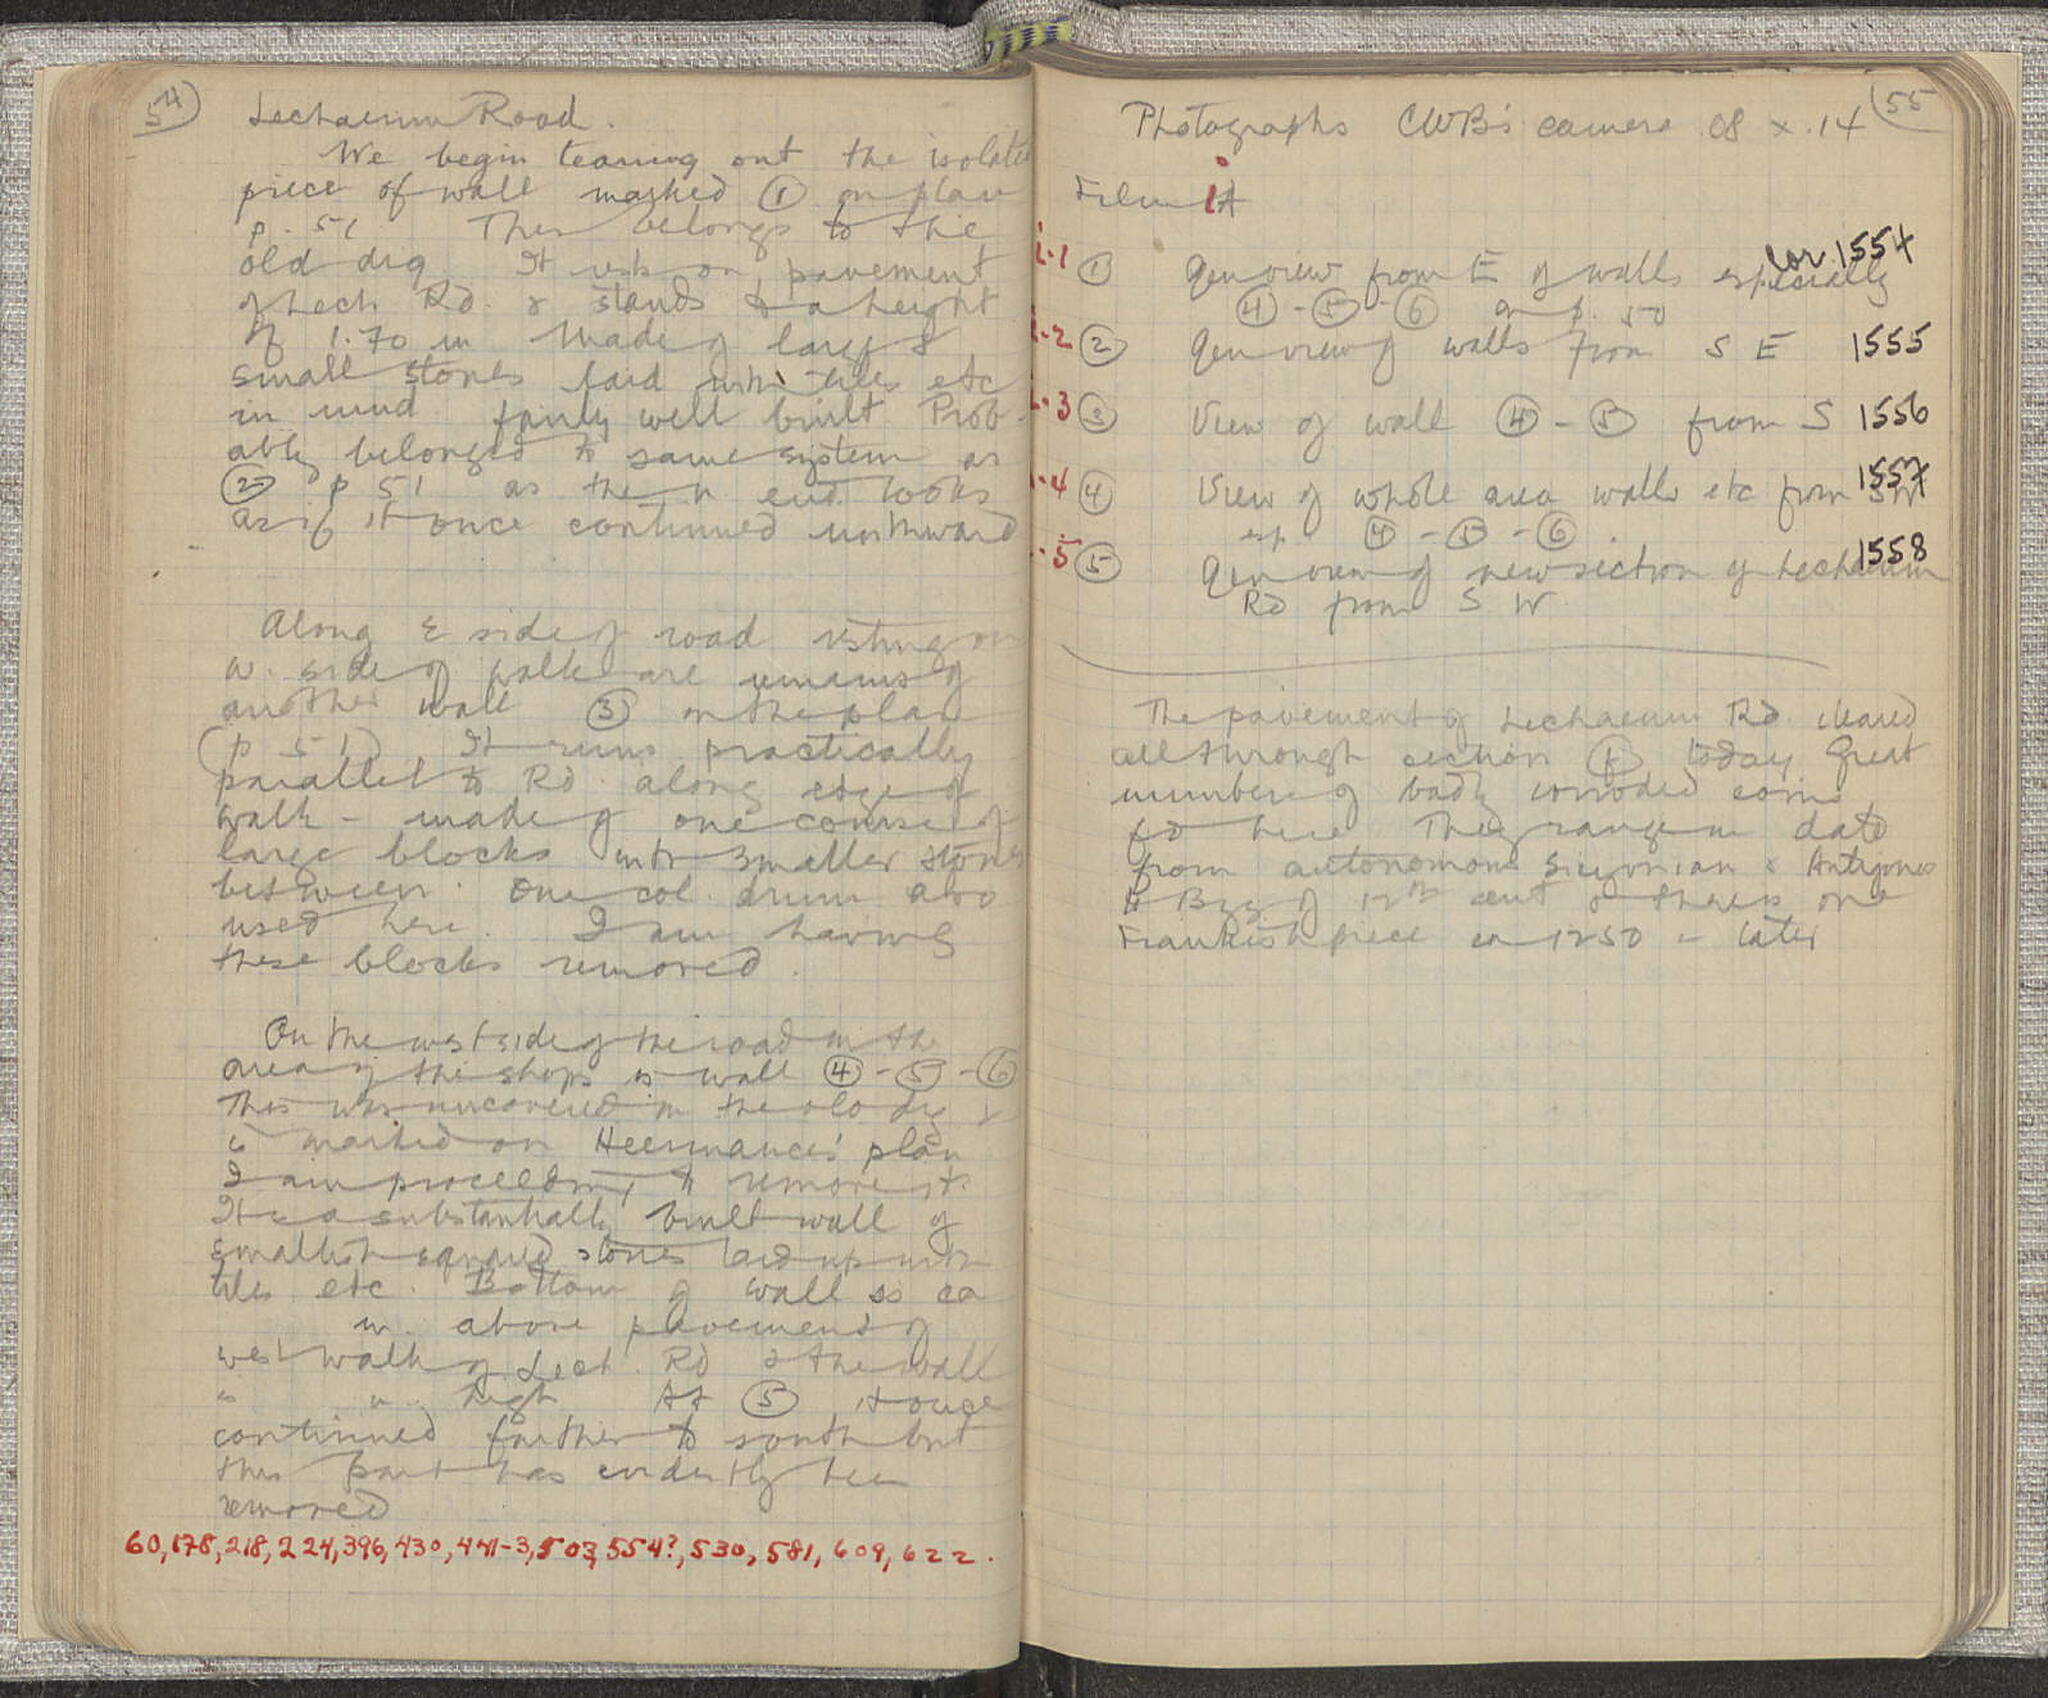 54
Lechaeum Road.
We begin tearing out the isolated
piece of wall marked ① on plan
p. 51 This belongs to the
old dig. It rests on pavement
of Lech Rd. & stands to a height
of 1.70 m Made of large &
small stones laid with tiles etc
in mud fairly well built Prob-
ably belonged to same system as
② p 51 as the n. end looks
as if it once continued northward
Along E side of road resting on
w. side of walk are remains of
another wall ③ on the plan
(p 51) It runs practically
parallel to Rd. along edge of
walk - made of one course of
large blocks with smaller stones
between. One col. drum also
used here. I am having
these blocks removed.
On the west side of the road in the
area of the shops is wall ④-⑤-⑥
This was uncovered in the old dig &
is marked on Heermance's plan
I am proceeding to remove it.
It is a substantially built wall of
smallish squared stones laid up with
tiles etc. Bottom of wall is ca
m. above pavement of
west walk of Lech. Rd & the wall
is m. high At ⑤ it once
continued farther to south but
this part has evidently been
removed
60, 178, 218, 224, 396, 430, 441-3, 503, 554?, 530, 581, 609, 622.
55
Photographs CWB's camera .08 x .14
Film
i-1 ① Gen view from E of walls especially cor. 1554
④-⑤-⑥ on p. 50
i-2 ② Gen view of walls from S E 1555
i-3 ③ View of wall ④-⑤ from S 1556
i-4 ④ View of whole area walls etc from SW 1557
esp. ④-⑤-⑥.
i-5 ⑤ Gen view of new section of Lechaeum 1558
Rd from S W.
The pavement of Lechaeum Rd. cleared
all through section ① today Great
number of badly corroded coins
fd here They range in date
from autonomous Sicyonian & Antigonos
to Byz of 12th cent & there is one
Frankish piece ca 1250 or later